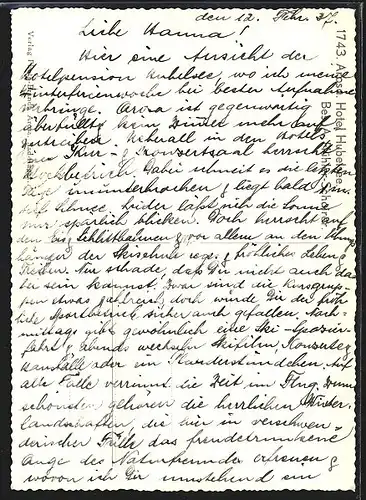 den 12. Febr. 37.
Liebe Hanna!
Hier eine Ansicht der
Hotelpension Hubelsee, wo ich meine
Winterferienwoche bei bester Aufnahme
verbringe. Arosa ist gegenwärtig
überfüllt, kein Zimmer mehr auf-
zutreiben. Überall in den Hotels
Kur- & Konzertsaal herrscht
Hochbetrieb. Dabei schneit es die letzten
Tage ununterbrochen & liegt bald
Schnee, leider läßt sich die Sonne
nur spärlich blicken. Doch herrscht auf
den Eis- Schlittbahnen & vor allem an den Übungs
hängen der Skischule rege & fröhliches Leben &
Treiben. Nur schade, daß Du nicht auch da-
bei sein kannst. Zwar sind die Kursgrup-
pen etwas, doch würde Dir der fröh-
liche Sportbetrieb sicher auch gefallen. Nach-
mittags gibt's gewöhnlich eine Ski-Spazier-
fahrt & abends wechseln Skifilm, Konzerte &
Hausbälle oder ein Plauderstündchen. Auf
alle Fälle verrinnt die Zeit im Flug. Zum
schönsten gehören die herrlichen Winter-
landschaften, die hier in verschwen-
derischer Fülle das freudetrunkene
Auge des Naturfreundes erfreuen &
wovon ich Dir umstehend ein
1743. Arosa. Hotel Hubelsee
Verlag